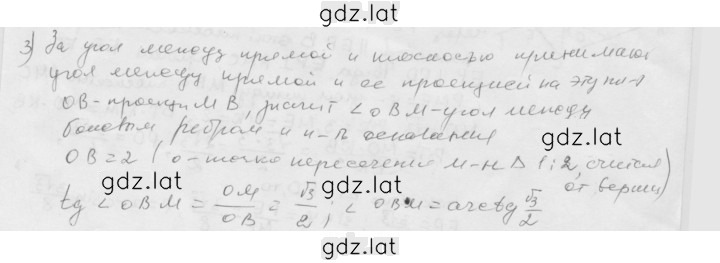 gdz.lat
3) За угол между прямой и плоскостью принимают
угол между прямой и ее проекцией на эту пл-ь
OB - проекци MB, значит ∠OBM - угол между
боковым ребром и п-ю основания
OB = 2 (O - точка пересечения м-н Δ 1:2, считая
от верши)
gdz.lat
gdz.lat
tg ∠OBM = OM/OB = √3/2; ∠OBM = arctg √3/2
gdz.lat